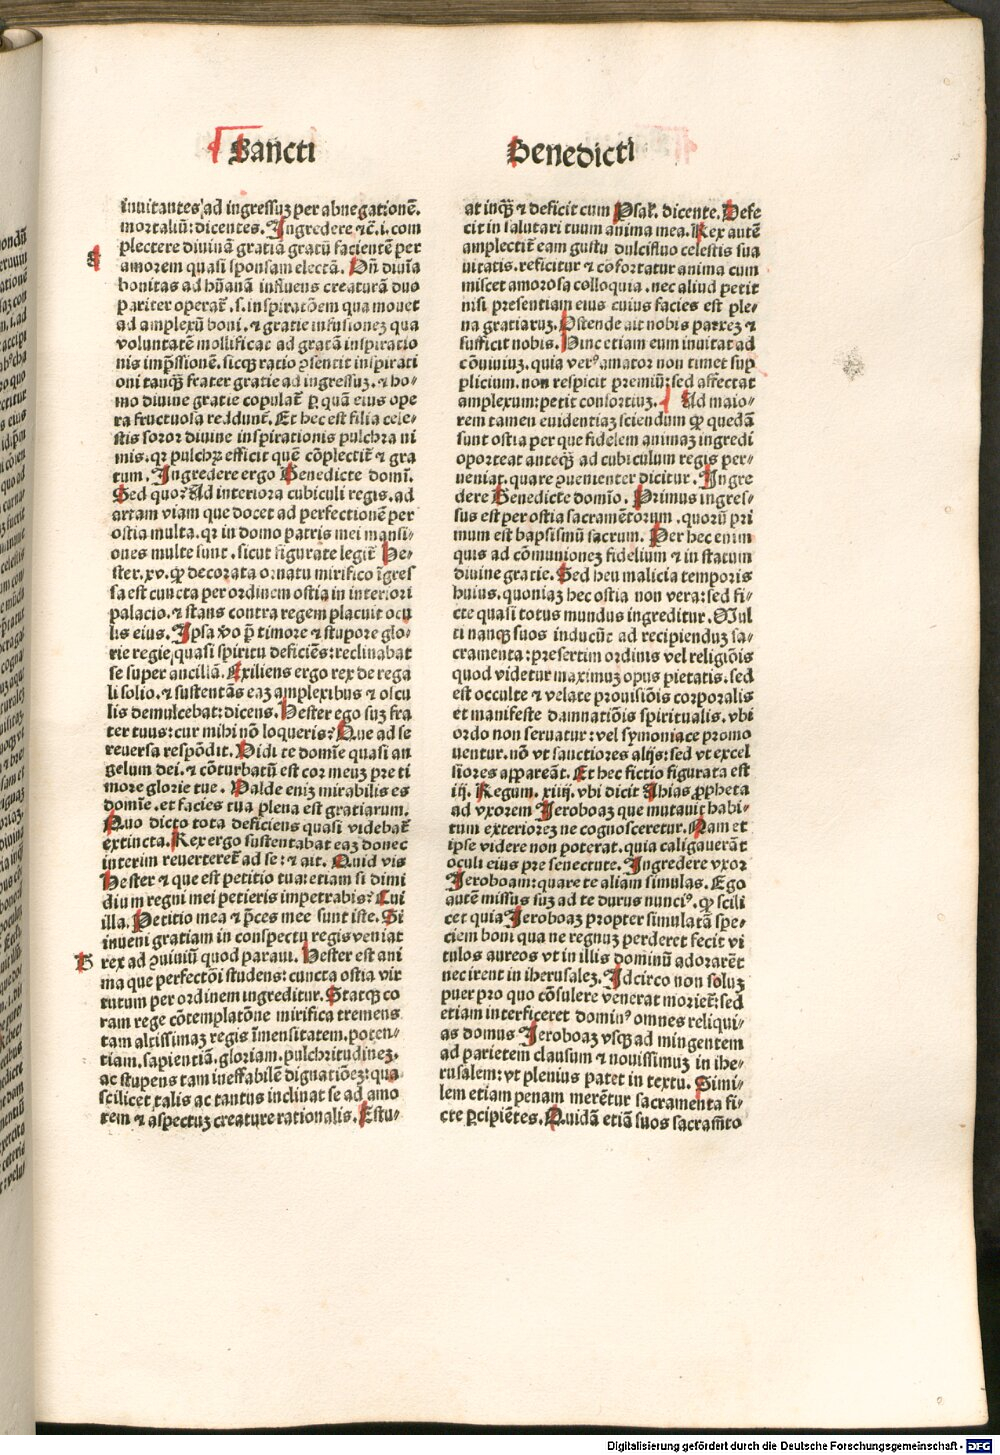 Sancti
Benedicti
inuitantes ad ingressuʒ per abnegationē.
mortaliū: dicentes. Ingredere ⁊c̄. i. com
plectere diuinā gratiā gratū facientē per
A
amorem quasi sponsam electā. Dn̄ diuīa
bonitas ad hūanā influens creaturā duo
pariter operat̄ .s. inspiratōem qua mouet
ad amplexū boni. ⁊ gratie infusionez qua
voluntatē mollificat ad gratā inspiratio
nis imp̄ssionē. sicqʒ ratio ꝯsentit inspirati
oni tanqʒ̄ frater gratie ad ingressuʒ. ⁊ ho⸗
mo diuine gratie copulat̄ ꝑ quā eius ope
ra fructuosa reddunt̄. Et hec est filia cele⸗
stis soror diuine inspirationis pulchra ni
mis. qꝛ pulchꝝ efficit quē cōplectit̄ ⁊ gra
tum. Ingredere ergo Benedicte domī.
Sed quo? Ad interiora cubiculi regis. ad
artam viam que docet ad perfectionē per
ostia multa. qꝛ in domo patris mei mansi⸗
ones multe sunt. sicut figurate legit̄ He⸗
ster. xv. ꝙ decorata ornatu mirifico īgres
sa est cuncta per ordinem ostia in interiori
palacio. ⁊ stans contra regem placuit ocu
lis eius. Ipsa v̄o p̄ timore ⁊ stupore glo⸗
rie regie quasi spiritu deficiēs: reclinabat
se super ancillā. Exiliens ergo rex de rega
li solio. ⁊ sustentās eaʒ amplexibus ⁊ oscu
lis demulcebat: dicens. Hester ego suʒ fra
ter tuus: cur mihi nō loqueris? Que ad se
reuersa respōdit. Vidi te domīe quasi an
gelum dei. ⁊ cōturbatū est cor meuʒ pre ti
more glorie tue. Valde eniʒ mirabilis es
domīe. et facies tua plena est gratiarum.
Quo dicto tota deficiens quasi videbat̄
extincta. Rex ergo sustentabat eaʒ donec
interim reuerteret̄ ad se: ⁊ ait. Quid vis
Hester ⁊ que est petitio tua: etiam si dimi
dium regni mei petieris impetrabis? Cui
illa. Petitio mea ⁊ p̄ces mee sunt iste. Si
inueni gratiam in conspectu regis veniat
B
rex ad ꝯuiuiū quod paraui. Hester est ani
ma que perfectōi studens: cuncta ostia vir
tutum per ordinem ingreditur. Statqʒ co
ram rege cōtemplatōne mirifica tremens
tam altissimaʒ regis īmensitatem. poten⸗
tiam. sapientiā. gloriam. pulchritudineʒ.
ac stupens tam ineffabilē dignatiōeʒ: qua
scilicet talis ac tantus inclinat se ad amo
rem ⁊ aspectuʒ creature rationalis. Estu⸗
at inqʒ̄ ⁊ deficit cum Psal. dicente. Defe
cit in salutari tuum anima mea. Rex autē
amplectit̄ eam gustu dulcifluo celestis sua
uitatis. reficitur ⁊ cōfortatur anima cum
miscet amorosa colloquia. nec aliud petit
nisi presentiam eius cuius facies est ple⸗
na gratiaruʒ. Ostende ait nobis patreʒ ⁊
sufficit nobis. Hunc etiam eum inuitat ad
cōuiuiuʒ. quia ver⁹ amator non timet sup
plicium. non respicit premiū: sed affectat
amplexum: petit consortiuʒ. Ad maio⸗
rem tamen euidentiaʒ sciendum ꝙ quedā
sunt ostia per que fidelem animaʒ ingredi
oporteat anteqʒ̄ ad cubiculum regis per⸗
ueniat. quare ꝯuenienter dicitur. Ingre
dere Benedicte domīo. Primus ingres⸗
sus est per ostia sacramētorum. quorū pri
mum est baptismū sacrum. Per hec enim
quis ad cōmunioneʒ fidelium ⁊ in statum
diuine gratie. Sed heu malicia temporis
huius. quoniaʒ hec ostia non vera: sed fi⸗
cte quasi totus mundus ingreditur. Mul
ti nanqʒ suos inducūt ad recipienduʒ sa⸗
cramenta: presertim ordinis vel religiōis
quod videtur maximuʒ opus pietatis. sed
est occulte ⁊ velate prouisiōis corporalis
et manifeste damnatiōis spiritualis. vbi
ordo non seruatur: vel symoniace promo
uentur. nō vt sanctiores alijs: sed vt excel
siores appareāt. Et hec fictio figurata est
iij. Regum. xiiij. vbi dicit Ahias ꝓpheta
ad vxorem Jeroboaʒ que mutauit habi⸗
tum exterioreʒ ne cognosceretur. Nam et
ipse videre non poterat. quia caligauerāt
oculi eius pre senectute. Ingredere vxor
Jeroboam: quare te aliam simulas. Ego
autē missus suʒ ad te durus nunci⁹. ꝙ scili
cet quia Jeroboaʒ propter simulatā spe⸗
ciem boni qua ne regnuʒ perderet fecit vi
tulos aureos vt in illis dominū adorarēt
nec irent in iherusaleʒ. Idcirco non soluʒ
puer pro quo cōsulere venerat moriet̄: sed
etiam interficeret domin⁹ omnes reliqui⸗
as domus Jeroboaʒ vsqʒ ad mingentem
ad parietem clausum ⁊ nouissimuʒ in ihe⸗
rusalem: vt plenius patet in textu. Simi⸗
lem etiam penam merētur sacramenta fi⸗
cte ꝑcipiētes. Quidā etiā suos sacram̄to
Digitalisierung gefördert durch die Deutsche Forschungsgemeinschaft - DFG